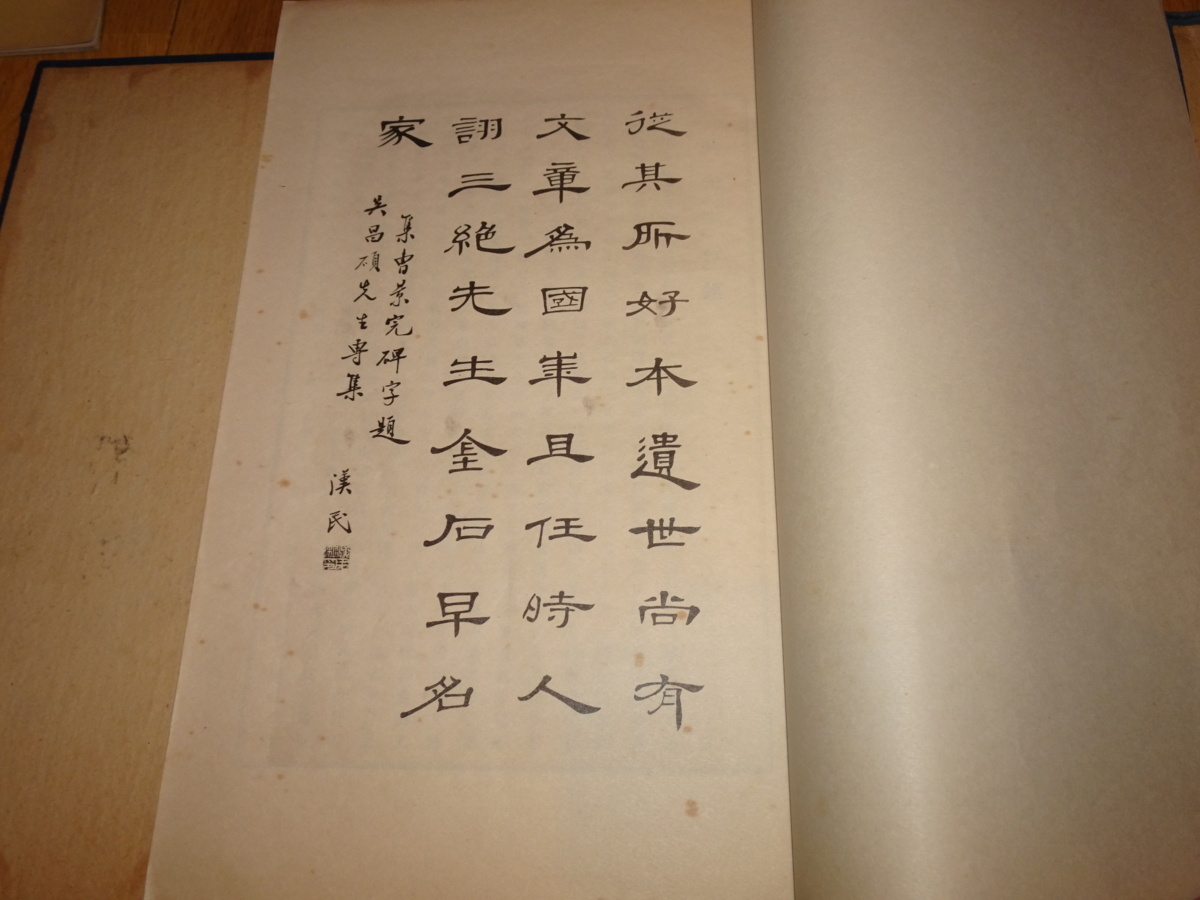 從其所好本遺世尚有
文章為國華且任時人
詡三絶先生金石早名
家
集曹景完碑字題
吴昌碩先生專集
漢民